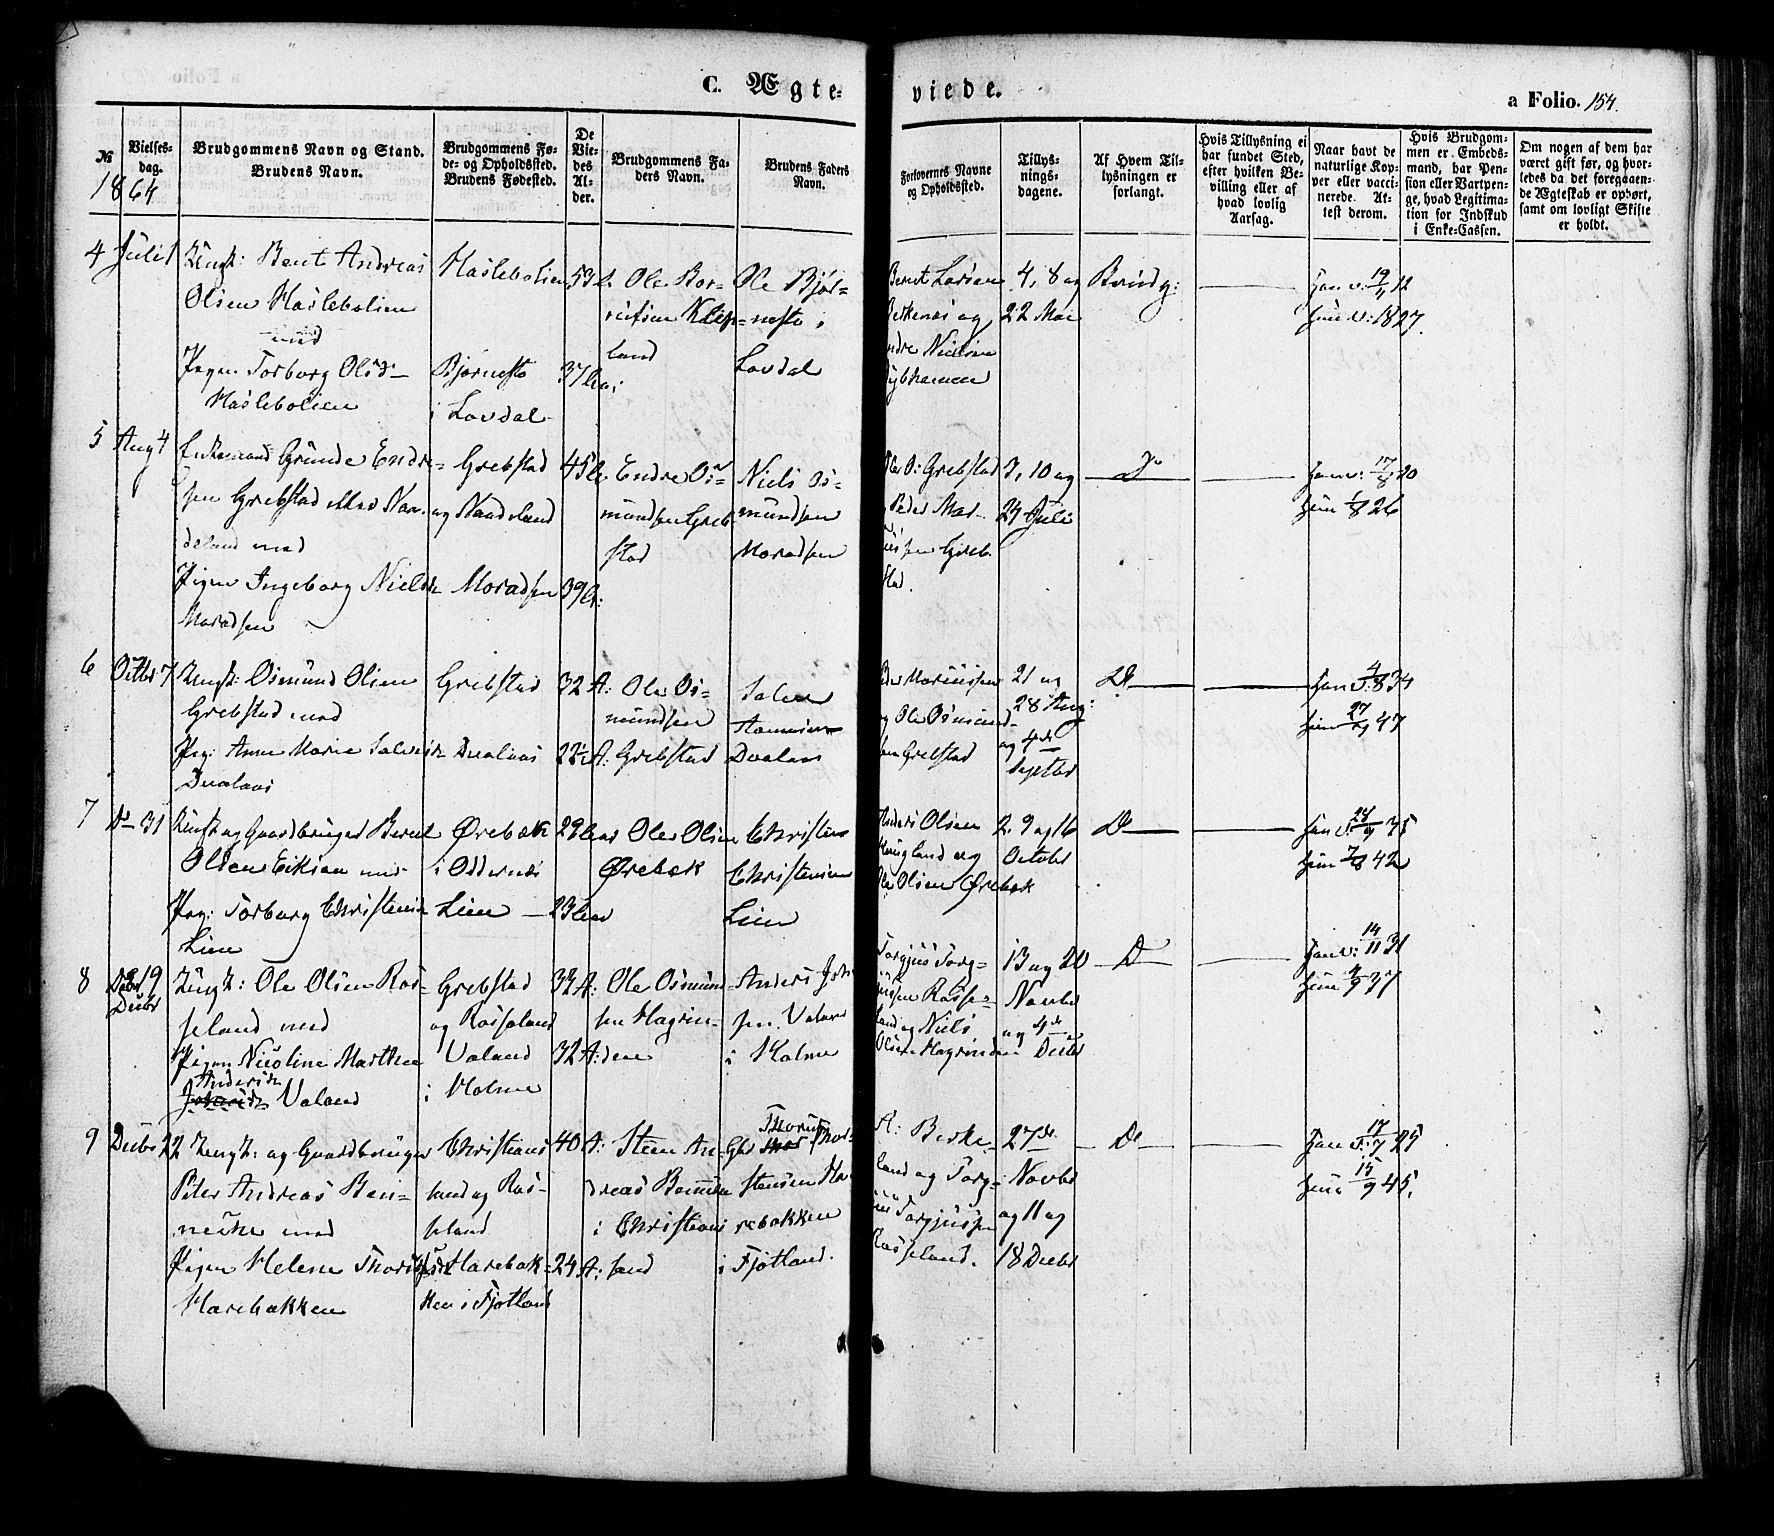 C. Ægte-
viede.
a Folio. 154.
№
1864
Vielses-
dag.
Brudgommens Navn og Stand.
Brudens Navn.
Brudgommens Fø-
de- og Opholdssted.
Brudens Fødested.
De
Vie-
des
Al-
der.
Brudgommens Fa-
ders Navn.
Brudens Faders
Navn.
Forlovernes Navne
og Opholdssted.
Tillys-
nings-
dagene.
Af Hvem Til-
lysningen er
forlangt.
Hvis Tillysning ei
har fundet Sted,
efter hvilken Be-
villing eller af
hvad lovlig
Aarsag.
Naar havt de
naturlige Kop-
per eller vacci-
nerede. At-
test derom.
Hvis Brudgom-
men er Embeds-
mand, har Pen-
sion eller Vartpen-
ge, hvad Legitima-
tion for Indskud
i Enke-Cassen.
Om nogen af dem har
været gift før, og hvor-
ledes da det foregaaen-
de Ægteskab er ophørt,
samt om lovligt Skifte
er holdt.
4 Juli 1
Ungk: Bent Andreas
Olsen Haslebolien
med
Pigen Torborg Olsd
Haslebolien
Haslebolien
Bjørnesto
i Lovdal
53
37
Ole Bor-
land
Ole Bjør-
nesto
Lovdal
Bernt Larsen
og
4, 8 og
22 Mai
Brudg:
han v: 19/11 12
hun v: 1827
5 Aug 4
Enkemand Grunde Endre-
sen Grebstad eller Nan-
deland med
Pigen Ingeborg Nielsd
Moradsen
Grebstad
og Nandeland
Moradsen
45
39
Endre Os-
mundsen Greb-
stad
Niels Os-
mundsen
Moradsen
O: Grebstad
Peder Mar-
sen Greb
stad.
3, 10 og
24 Juli
D°
han v: 17/8 20
hun 1/8 26
6 Octbr 7
Ungk: Osmund Olsen
Grebstad med
Pig: Anne Marie Salvesd
Dualaas
Grebstad
Dualaas
32 A:
22½ A:
Ole Os-
mundsen
Grebstad
Salve
Dualaas
Marcussen
og Ole Osmund-
sen Grebstad
21 og
28 Aug:
og 4de
Septbr
D°
han v: 4/8 34
hun 27/9 47
7 D° 31
Ungk og Gaardbruger Bernt
Olsen Eiksen med
Pig: Torborg Christensd
Lien
Ørebek
i Oddernes
Lien
29
23
Ole Olsen
Ørebek
Christen
Christensen
Lien
Anders Olsen
Haugland og
Ole Olsen Ørebek
2, 9 og 16
October
D°
han v: 24/9 35
hun 7/8 42
8 19
Decbr
Ungk: Ole Olsen Ros-
seland med
Pigen Nicoline Marthea
Andersd
Valand
Grebstad
og Rosseland
Valand
i Holme
32 A:
32 A:
Ole Osmund-
sen Hagrin-
den
Anders
sen Valand
i Holme
Torgjus Torg-
jussen Rosse-
land og Niels
Olsen Hagrinden
13 og 20
Novbr
og 4de
Decbr
D°
han v: 14/11 31
hun 4/9 37
9 Decbr 22
Ungk: og Gaardbruger
Peter Andreas Ben-
neche med
Pigen Helene
Harebakken
Christians
sand og Ros-
seland
Harebak-
ken i Fjotland
40 A:
24 A:
Steen An-
dreas
i Christian-
sand
Thor-
stensen Ha-
rebakken
i Fjotland.
A: Birke-
land og Torg-
jus Torgjussen
Rosseland.
27de
Novbr
og 11 og
18 Decbr
D°
han v: 17/7 25
hun 15/9 45.